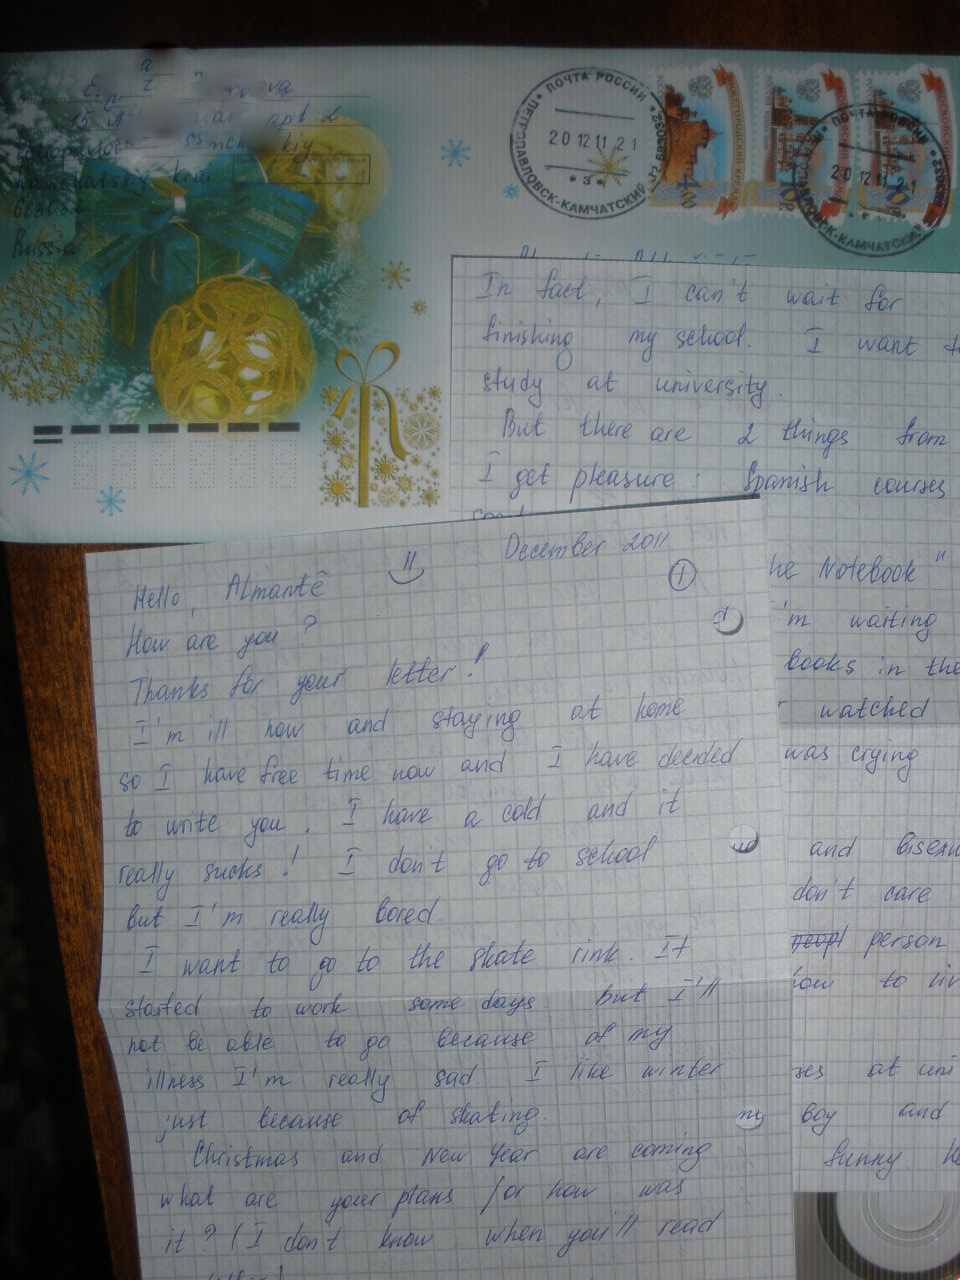 Russia
ПОЧТА РОССИИ
ПЕТРОПАВЛОВСК-КАМЧАТСКИЙ 32 683032
20 12 11 21
* 3 *
4,00
НИЖЕГОРОДСКИЙ КРЕМЛЬ
ПОЧТА РОССИИ
20 12 11 21
In fact, I can't wait for
finishing my school. I want
study at university.
But there are 2 things from
I get pleasure: Spanish courses
he Notebook"
'm waiting
books in the
watched
was crying
and
don't care
person
to
at
boy and
funny.
December 2011
1
Hello, Almantė
How are you?
Thanks for your letter!
I'm ill now and staying at home
so I have free time now and I have decided
to write you. I have a cold and it
really sucks! I don't go to school
but I'm really bored.
I want to go to the skate rink. It
started to work some days but I'll
not be able to go because of my
illness I'm really sad. I like winter
just because of skating.
Christmas and New Year are coming
what are your plans /or how was
it? (I don't know when you'll read